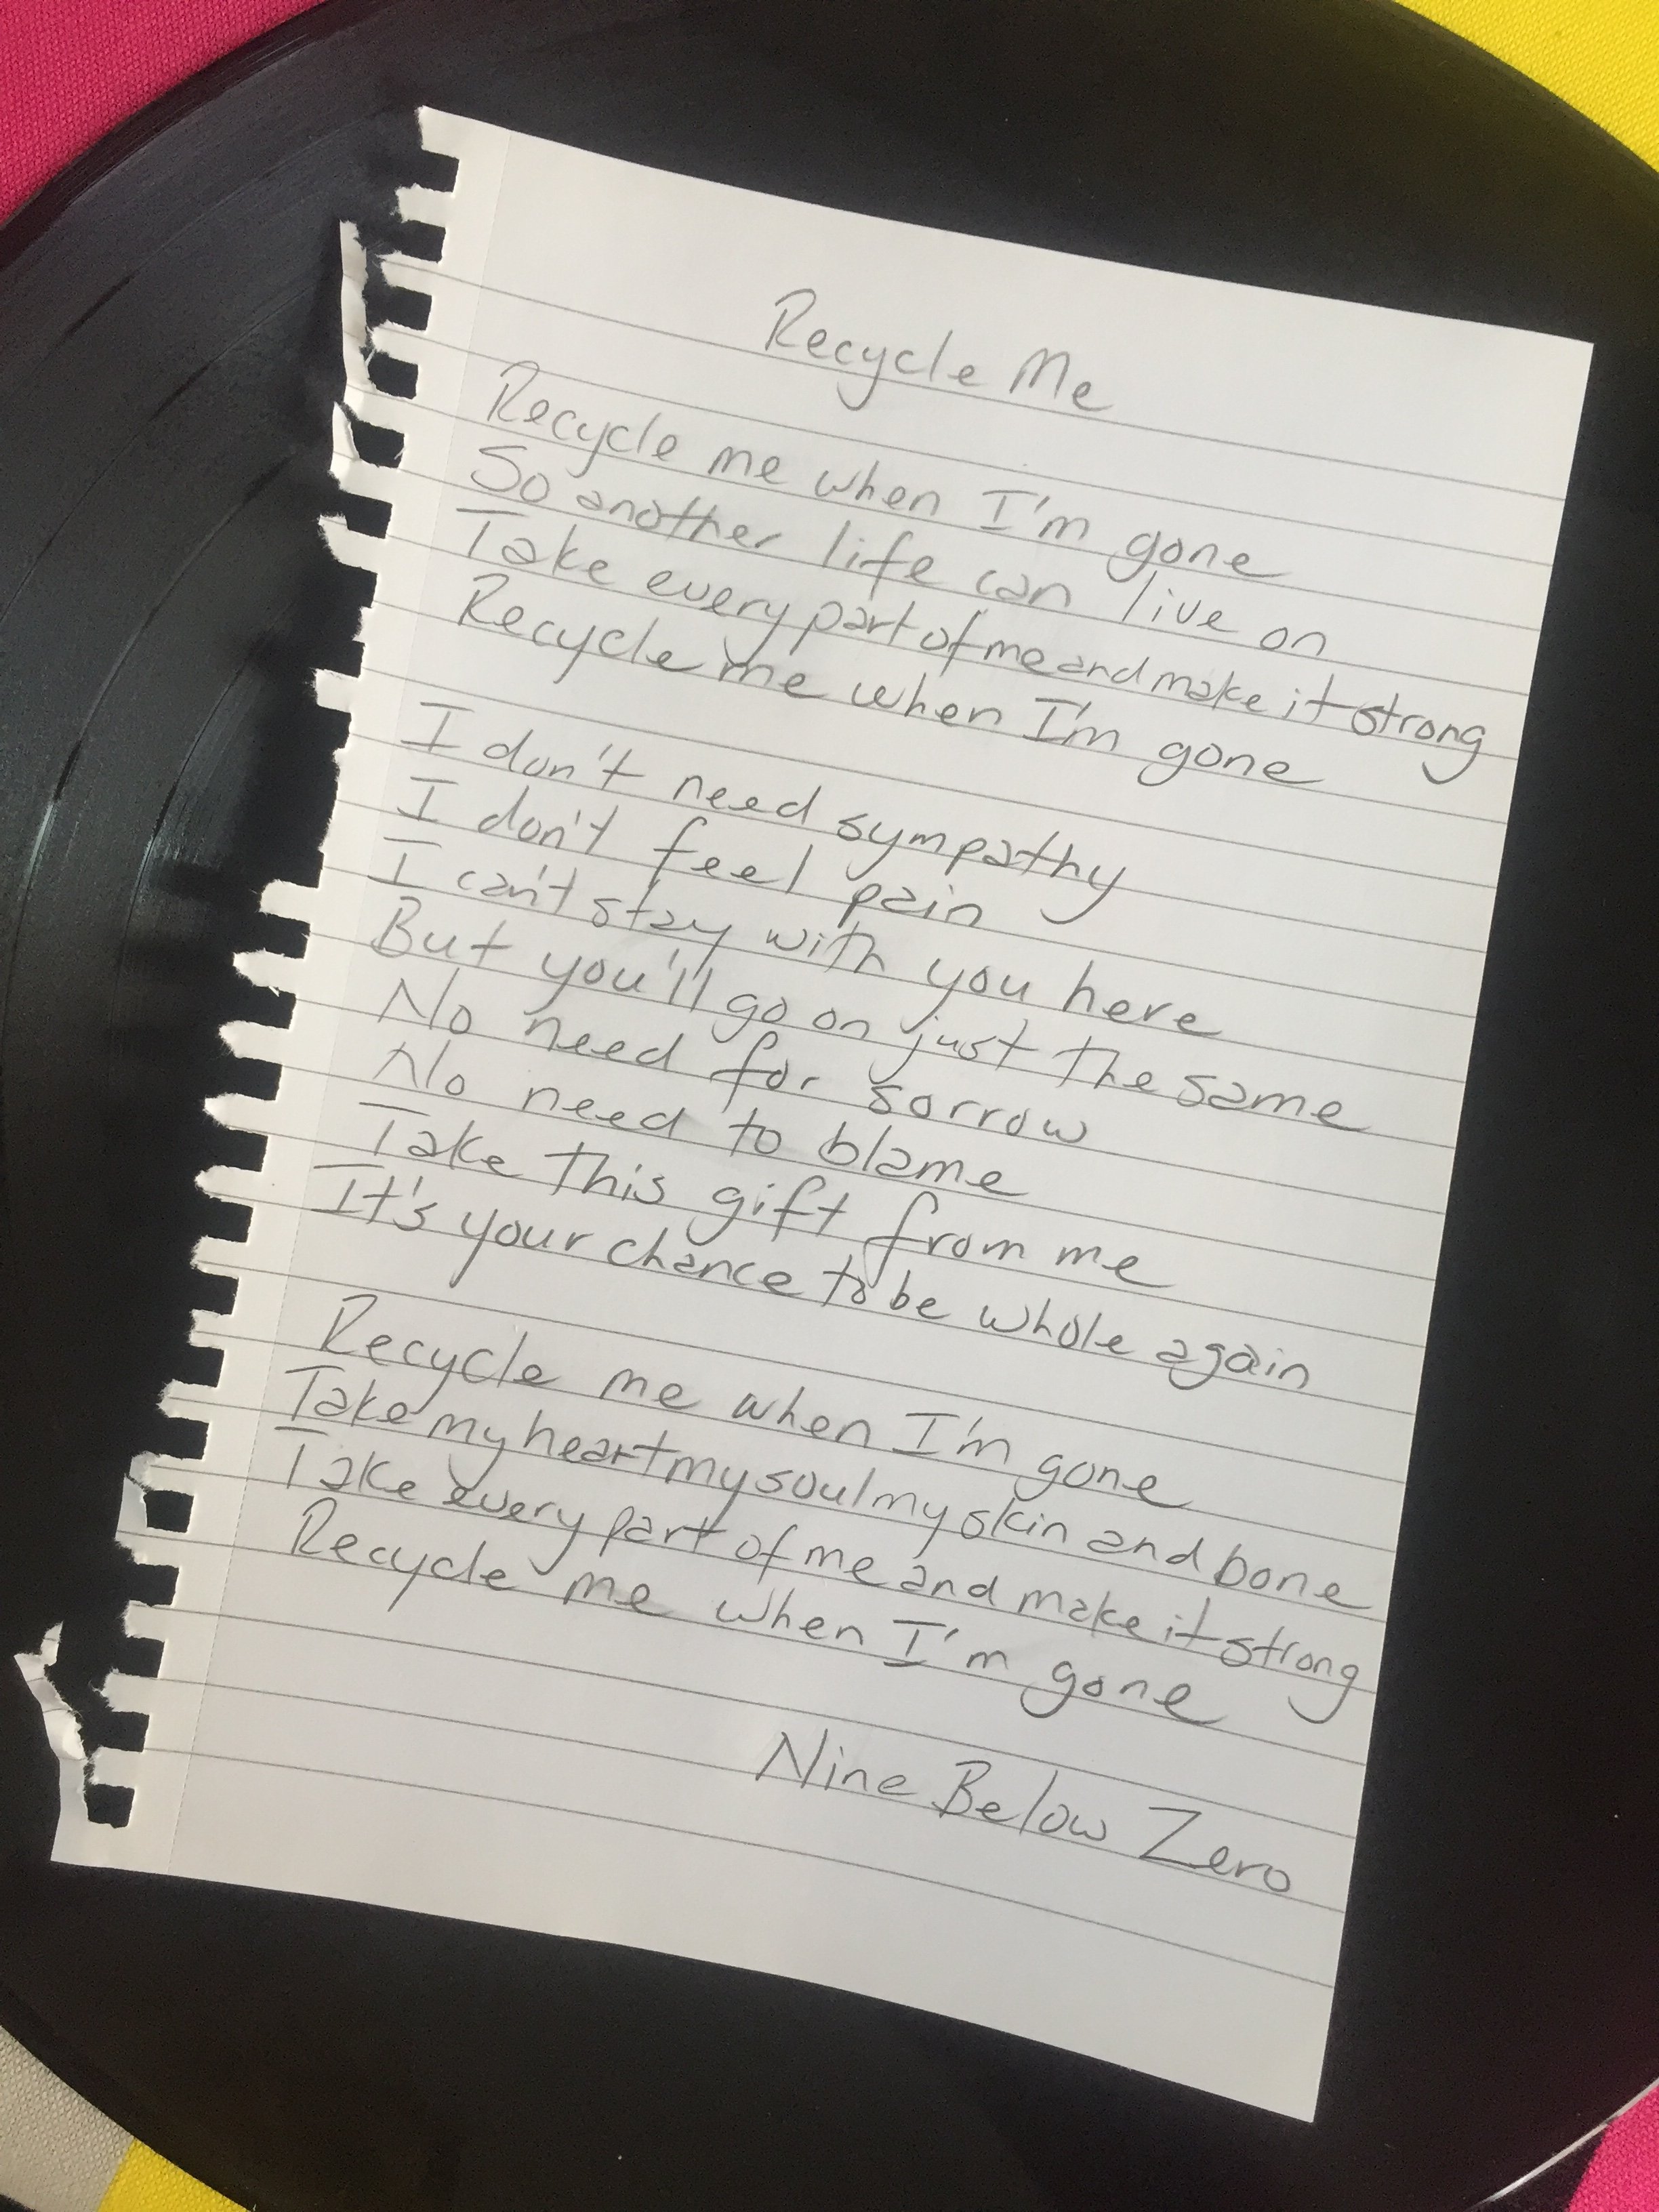 Recycle Me
Recycle me when I'm gone
So another life can live on
Take every part of me and make it strong
Recycle me when I'm gone
I don't need sympathy
I don't feel pain
I can't stay with you here
But you'll go on just the same
No need for sorrow
No need to blame
Take this gift from me
It's your chance to be whole again
Recycle me when I'm gone
Take my heart my soul my skin and bone
Take every part of me and make it strong
Recycle me when I'm gone
Nine Below Zero